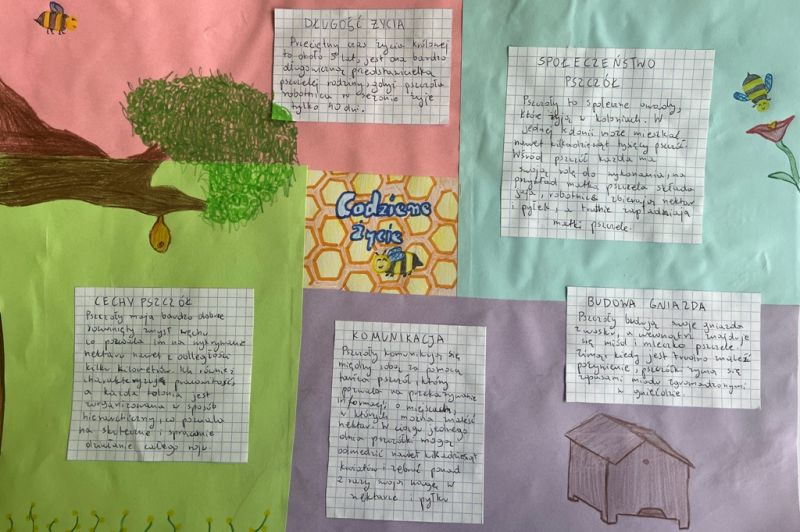 DŁUGOŚĆ ŻYCIA
Przeciętny czas życia królowej
to około 5 lat, jest ona bardzo
długowieczną przedstawicielką
pszczelej rodziny, gdyż pszczoła
robotnica w sezonie żyje
tylko 40 dni.
SPOŁECZEŃSTWO
PSZCZÓŁ
Pszczoły to społeczne owady,
które żyją w koloniach. W
jednej kolonii może mieszkać
nawet kilkadziesiąt tysięcy pszczół.
Wśród pszczół każda ma
swoją rolę do wykonania, na
przykład matka pszczela składa
jaja, robotnice zbierają nektar
i pyłek, a trutnie zapładniają
matki pszczele.
Codzienne
życie
CECHY PSZCZÓŁ
Pszczoły mają bardzo dobrze
rozwinięty zmysł węchu
co pozwala im na wykrywanie
nektaru nawet z odległości
kilku kilometrów. Ich również
charakteryzuje pracowitość
a każda kolonia jest
zorganizowana w sposób
hierarchiczny, co pozwala
na skuteczne i sprawne
działanie całego roju.
KOMUNIKACJA
Pszczoły komunikują się
między sobą za pomocą
tańca pszczół, który
pozwala na przekazywanie
informacji o miejscach,
w których można znaleźć
nektar. W ciągu jednego
dnia pszczółki mogą
odwiedzić nawet kilkadziesiąt
kwiatów i zebrać ponad
2 razy swoją wagę w
nektarze i pyłku
BUDOWA GNIAZDA
Pszczoły budują swoje gniazda
z wosku, a wewnątrz znajduje
się miód i mleczko pszczele.
Zimą, kiedy jest trudno znaleźć
pożywienie, pszczółki żywią się
zapasami miodu zgromadzonymi
w gnieździe.